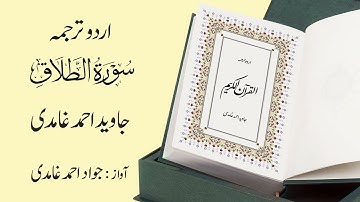 اردو ترجمہ
سُوْرَةُ الطَّلَاقِ
جاوید احمد غامدی
آواز : جواد احمد غامدی
اردو ترجمہ
القرآن الکریم
جاوید احمد غامدی